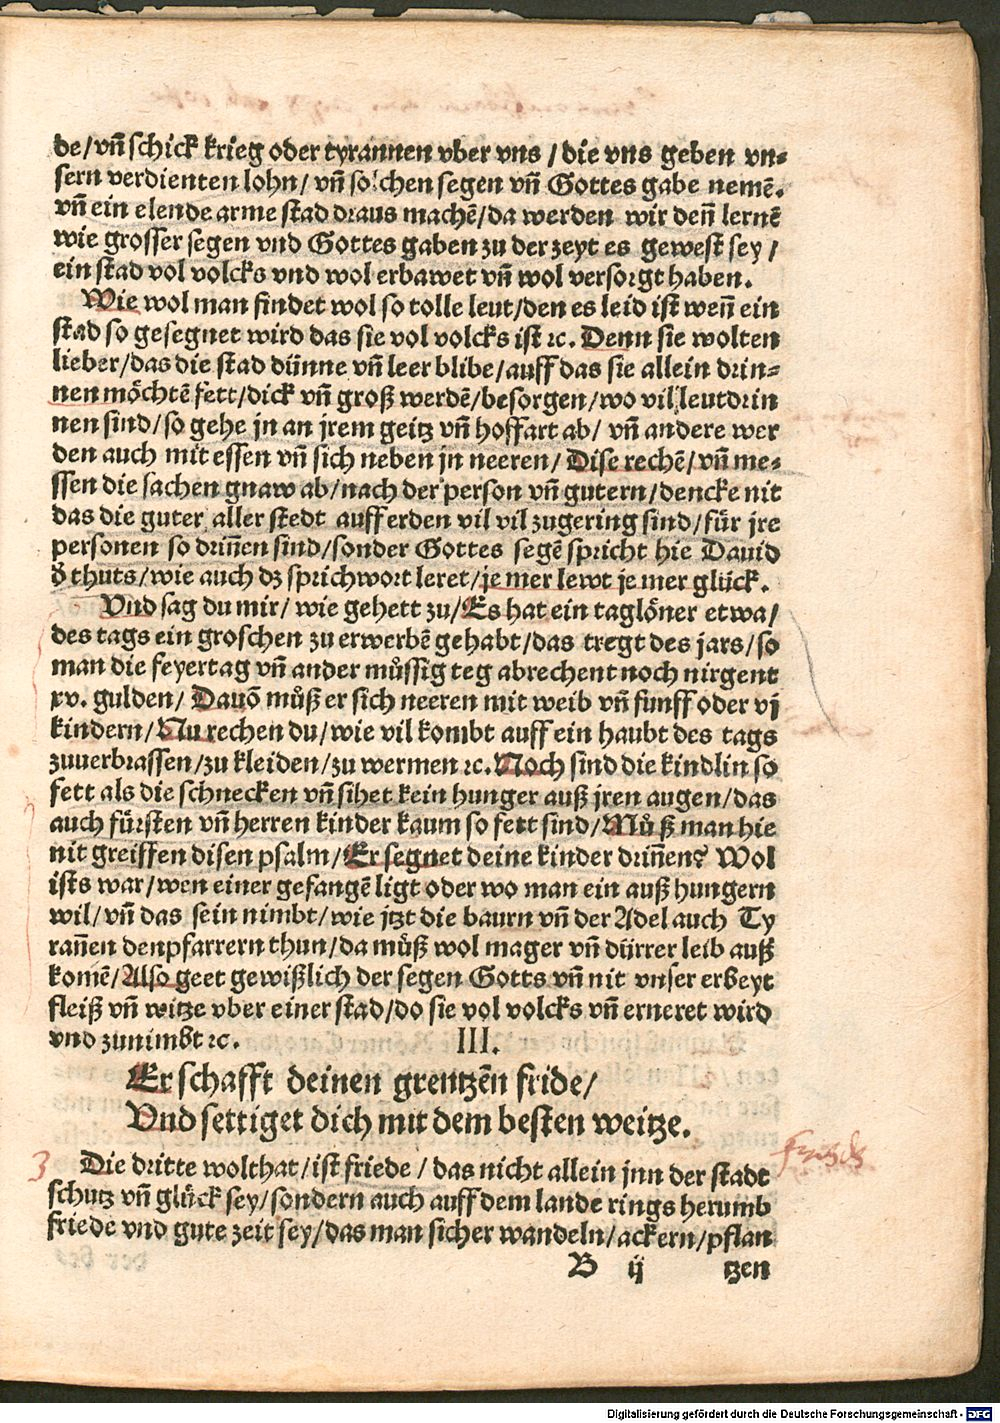 de/vñ schick krieg oder tyrannen vber vns / die vns geben vn=
sern verdienten lohn/ vñ solchen segen vñ Gottes gabe nemē.
vñ ein elende arme stad draus machē/da werden wir deñ lernē
wie grosser segen vnd Gottes gaben zu der zeyt es gewest sey /
ein stad vol volcks vnd wol erbawet vñ wol versorgt haben.
Wie wol man findet wol so tolle leut/den es leid ist weñ ein
stad so gesegnet wird das sie vol volcks ist ꝛc. Denn sie wolten
lieber/das die stad dünne vñ leer blibe/auff das sie allein drin=
nen möchtē fett/dick vñ groß werdē/besorgen/wo vil leut drin
nen sind/so gehe jn an jrem geitz vñ hoffart ab/ vñ andere wer
den auch mit essen vñ sich neben jn neeren/ Dise rechē/vñ me=
ssen die sachen gnaw ab/nach der person vñ gutern/dencke nit
das die guter aller stedt auff erden vil vil zugering sind/für jre
personen so driñen sind/sonder Gottes segē spricht hie Dauid
ď thuts/wie auch dz sprichwort leret/je mer lewt je mer glück.
Vnd sag du mir/ wie gehett zu/Es hat ein taglöner etwa/
des tags ein groschen zu erwerbē gehabt/das tregt des jars/so
man die feyertag vñ ander müssig teg abrechent noch nirgent
xv. gulden/ Dauō můß er sich neeren mit weib vñ funff oder vj
kindern/Nu rechen du/wie vil kombt auff ein haubt des tags
zuuerbrassen/zu kleiden/zu wermen ꝛc. Noch sind die kindlin so
fett als die schnecken vñ sihet kein hunger auß jren augen/das
auch fürsten vñ herren kinder kaum so fett sind/Můß man hie
nit greiffen disen psalm/Er segnet deine kinder driñen? Wol
ists war/wen einer gefangē ligt oder wo man ein auß hungern
wil/vñ das sein nimbt/wie jtzt die baurn vñ der Adel auch Ty
rañen den pfarrern thun/da můß wol mager vñ dürrer leib auß
komē/Also geet gewißlich der segen Gotts vñ nit vnser erbeyt
fleiß vñ witze vber einer stad/do sie vol volcks vñ erneret wird
vnd zunimbt ꝛc. III.
Er schafft deinen grentzen fride/
Vnd settiget dich mit dem besten weitze.
3 Die dritte wolthat/ist friede / das nicht allein jnn der stadt
schutz vñ glück sey/sondern auch auff dem lande rings herumb
friede vnd gute zeit sey/das man sicher wandeln/ackern/pflan
B ij tzen
Digitalisierung gefördert durch die Deutsche Forschungsgemeinschaft - DFG